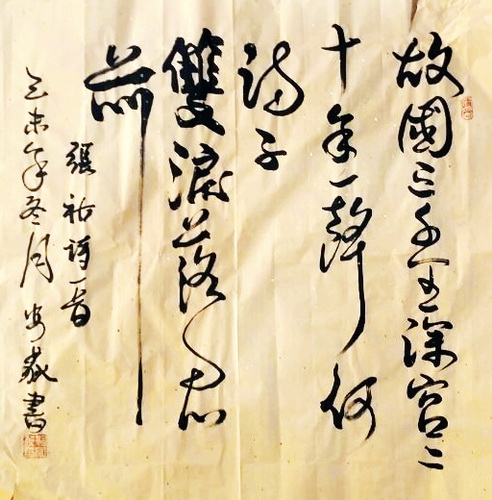 故國三千里深宫二
十年一聲何
满子
雙淚落君
前
張祜诗一首
未年冬月書